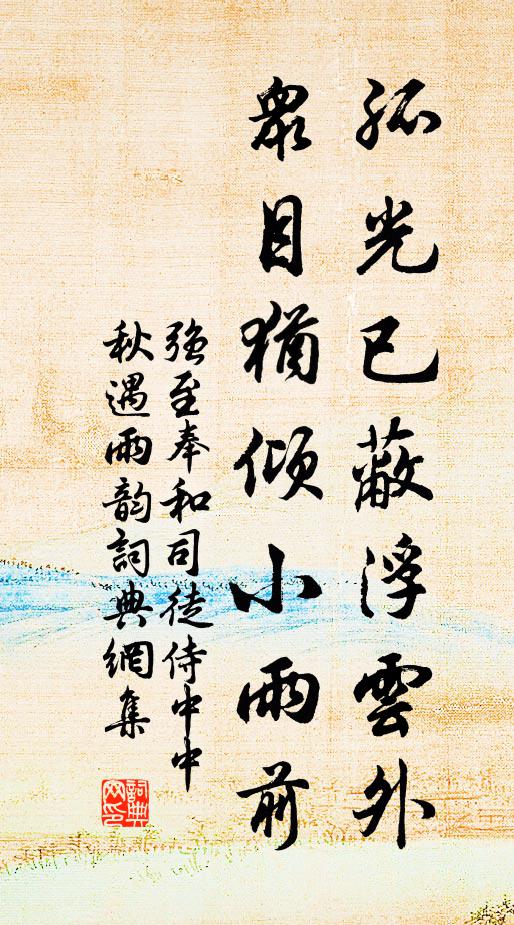 孤光已蔽浮雲外
眾目猶傾小雨前
強至奉和司徒侍中中
秋遇雨韵詞典網集
詞典网印